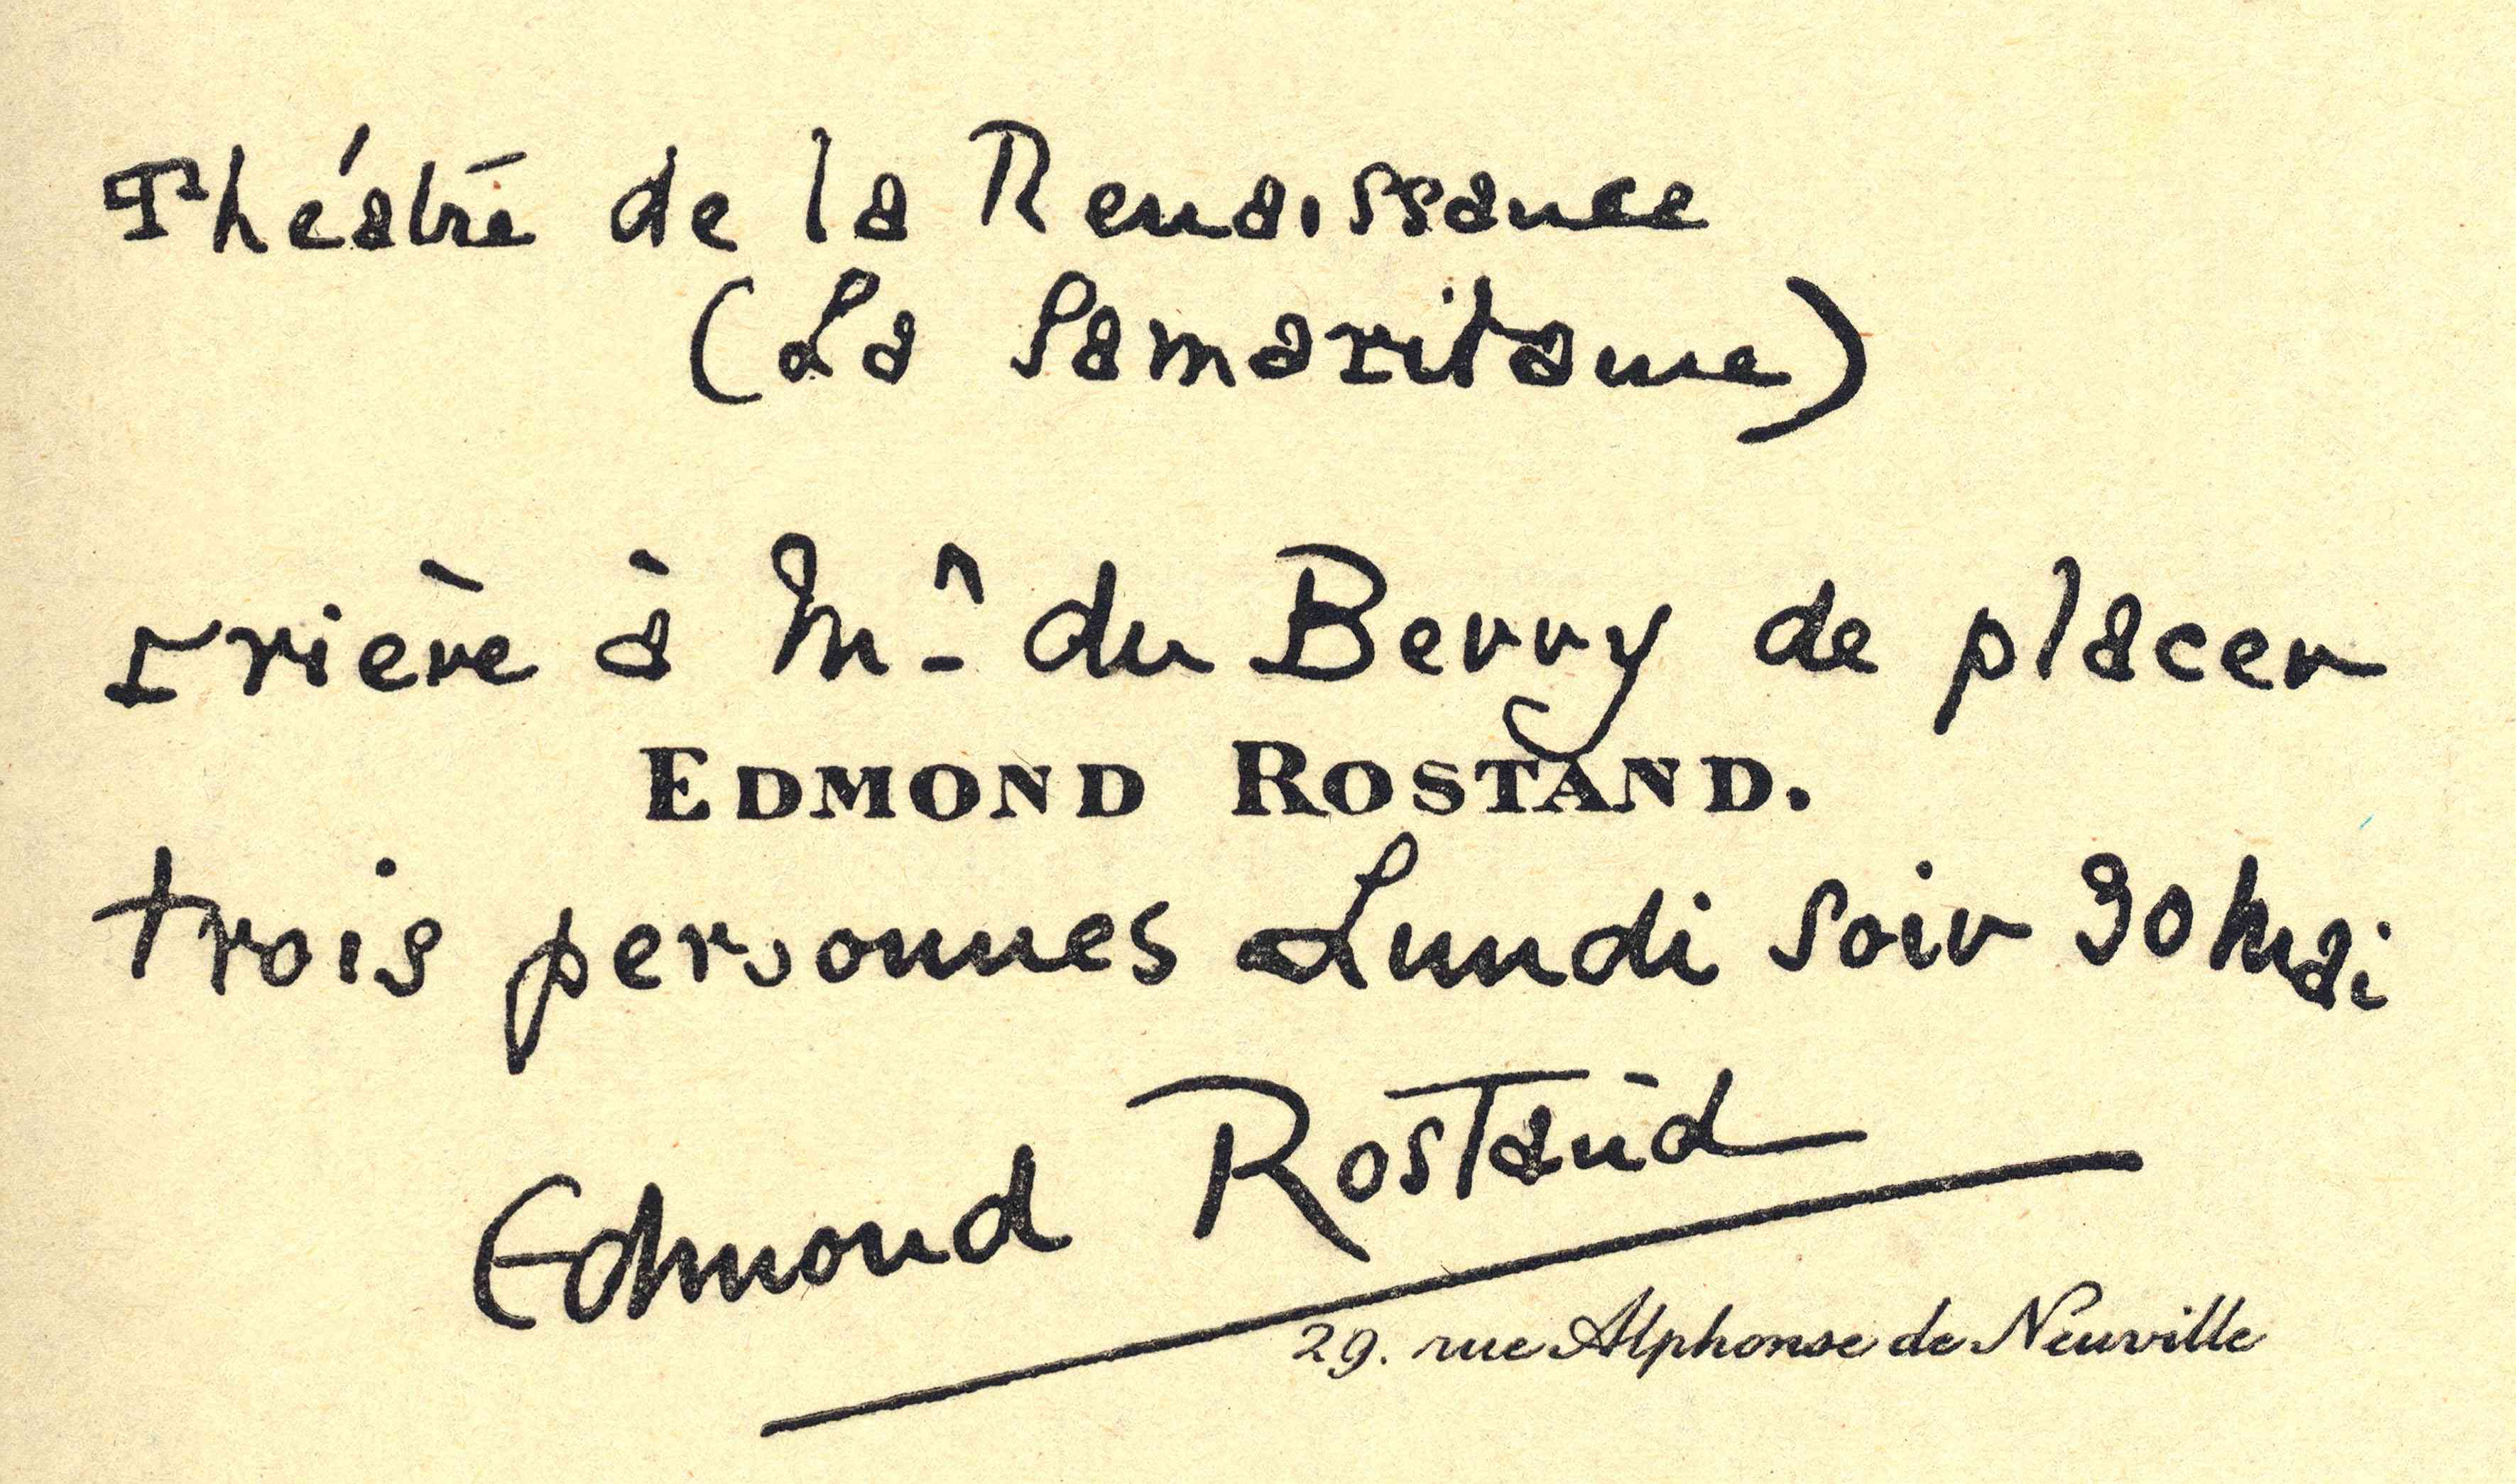 Théâtre de la Renaissance
(La Samaritaine)
Prière à Mr. du Berry de placer
EDMOND ROSTAND.
trois personnes Lundi soir 30 Mai
Edmond Rostand
29. rue Alphonse de Neuville